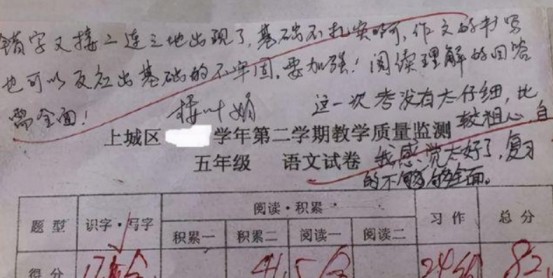 错字又接二连三地出现了,基础不扎实啊,作文的书写
也可以反应出基础的不牢固,要加强!阅读理解的回答
需全面!
这一次考没有太仔细,比
较粗心,自
我感觉太好了,复习
的不够全面。
上城区 学年第二学期教学质量监测
五年级 语文试卷
题型 识字·写字 阅读·积累 习作 总分
积累一 积累二 阅读一 阅读二
得分